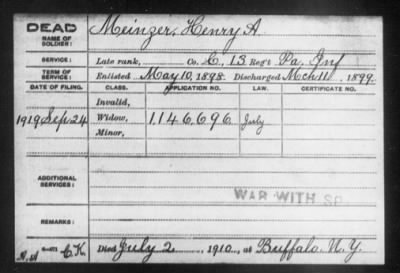 DEAD
NAME OF SOLDIER: Meinzer, Henry A.
SERVICE: Late rank, Co. C, 13 Reg't Pa. Inf
TERM OF SERVICE: Enlisted May 10, 1898. Discharged Mch 11, 1899
DATE OF FILING. CLASS. APPLICATION NO. LAW. CERTIFICATE NO.
Invalid,
1919 Sep 24 Widow, 1,146,696 July
Minor,
ADDITIONAL SERVICES:
WAR WITH SP
REMARKS:
C.K. Died July 2, 1910, at Buffalo, N.Y.